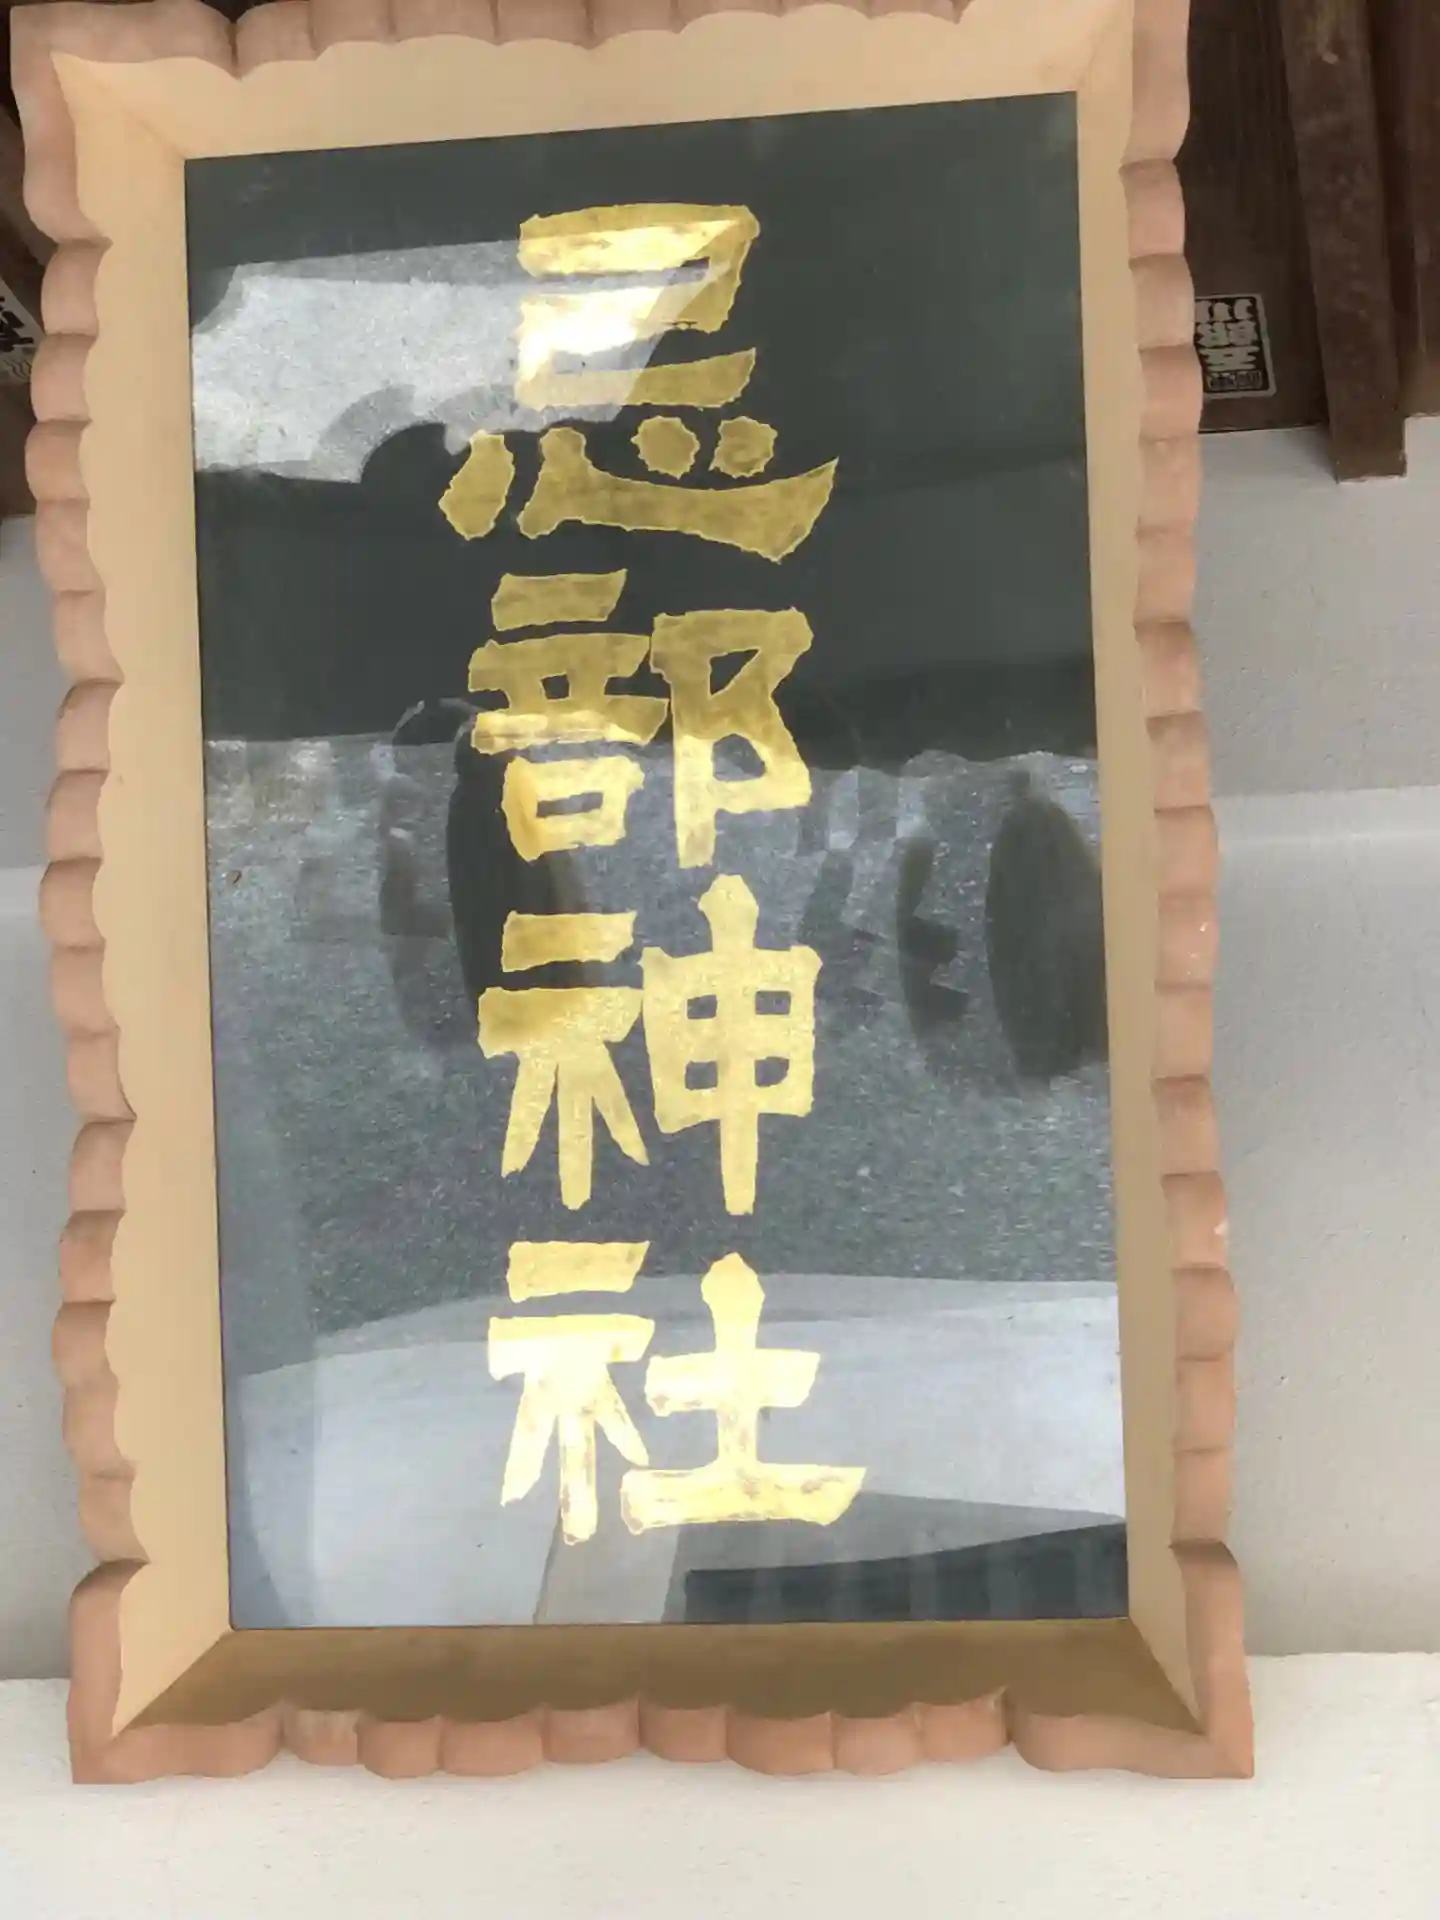 忌部神社